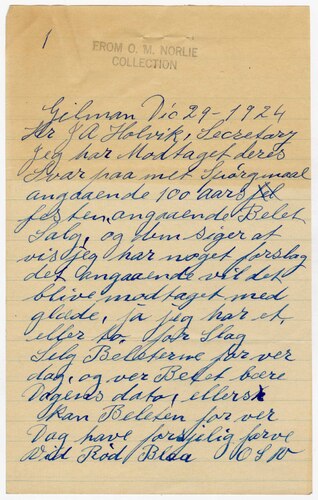 1
FROM O. M. NORLIE
COLLECTION
Gilman Dic 29 - 1924
Hr J A Holvik, Secretary
Jeg har Modtaget deres
Svar paa mit Spörgmaal
angaaende 100 aars
festen, angaaende Belet
Salg, og dem siger at
vis jeg har noget forslag
det angaaende vil det
blive modtaget med
glæde, ja jeg har et
eller to. for Slag
Selg Beleterne for ver
dag, og ver Belet bære
Dagens dato, ellers
skan Beleten for ver
Dag have forsjelig farve
Vid Röd Blaa O S V